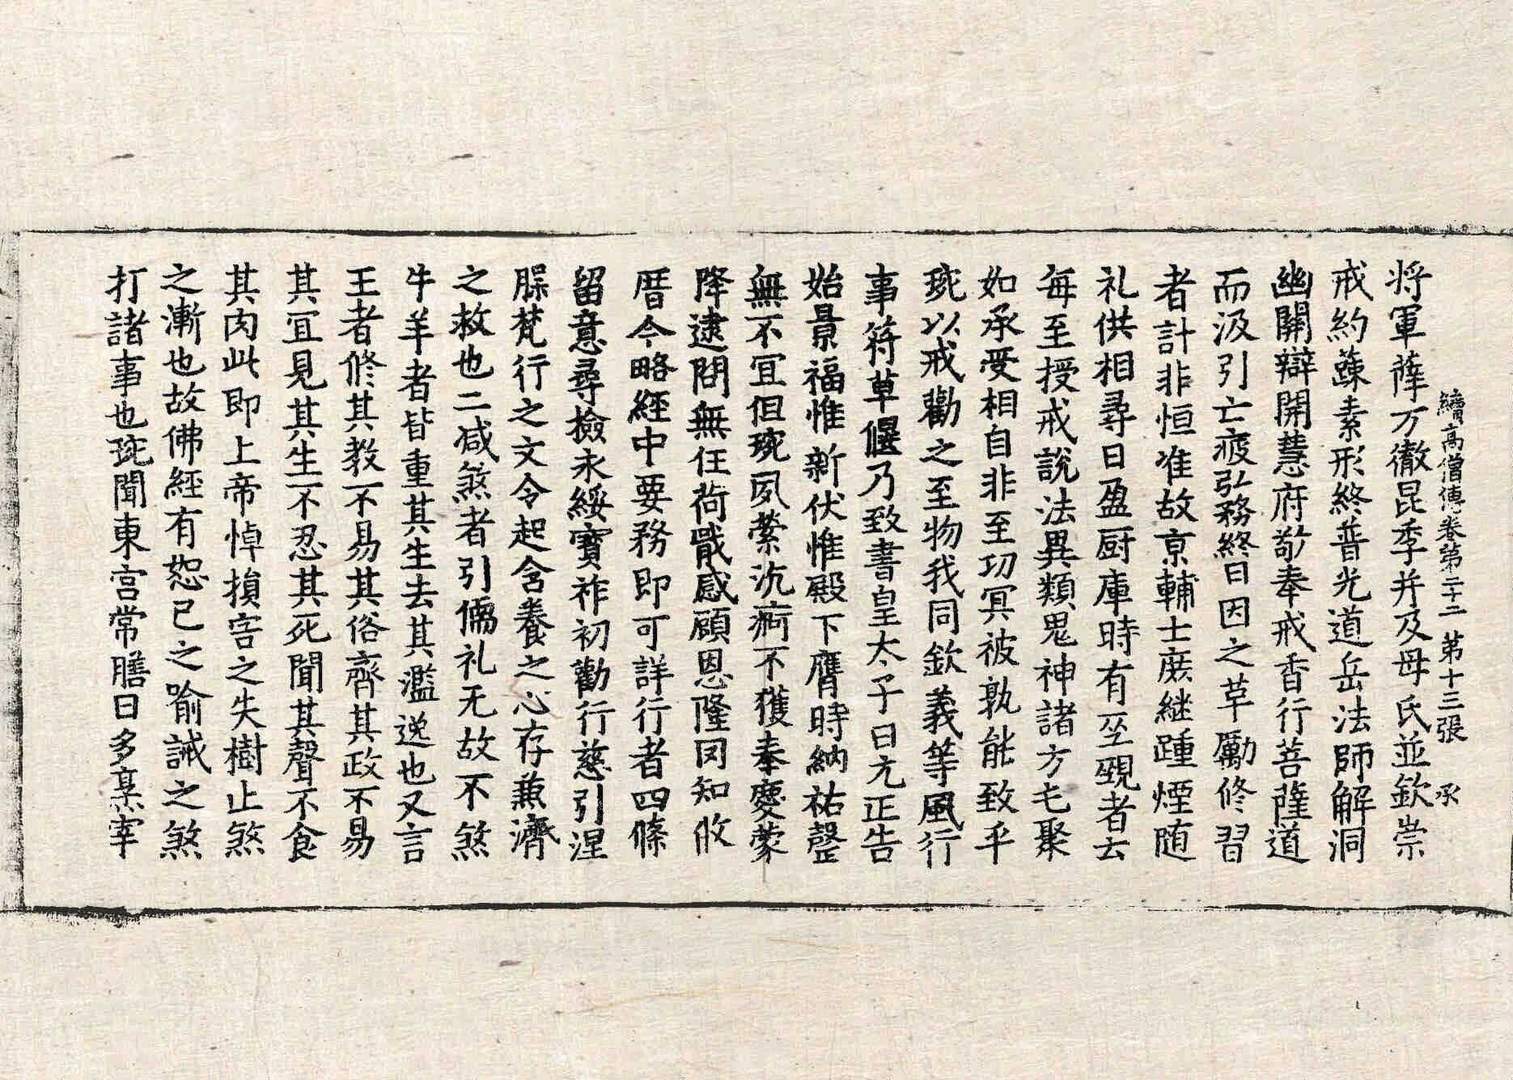 續高僧傳卷第二十二　第十三張　承
將軍薩万徹昆季并及母氏並欽崇
戒約蔬素形終普光道岳法師解洞
幽開辯開慧府敬奉戒香行菩薩道
而汲引亡疲弘務終日因之草勵修習
者計非恒准故京輔士庶継踵煙随
礼供相尋日盈厨庫時有巫覡者云
每至授戒說法異類鬼神諸方屯聚
如承受相自非至功冥被孰能致乎
琬以戒勸之至物我同欽義等風行
事符草偃乃致書皇太子曰元正告
始景福惟新伏惟殿下膺時納祐罄
無不宜但琬夙縈沉痾不獲奉慶蒙
降逮問無任荷戴感顧恩隆罔知攸
厝今略經中要務即可詳行者四條
留意尋撿永綏寶祚初勸行慈引涅
槃梵行之文令起含養之心存兼濟
之救也二减煞者引儒礼无故不煞
牛羊者皆重其生去其濫逆也又言
王者修其教不易其俗齊其政不易
其宜見其生不忍其死聞其聲不食
其肉此即上帝悼損害之失樹止煞
之漸也故佛經有恕己之喻誡之煞
打諸事也琬聞東宮常膳日多烹宰